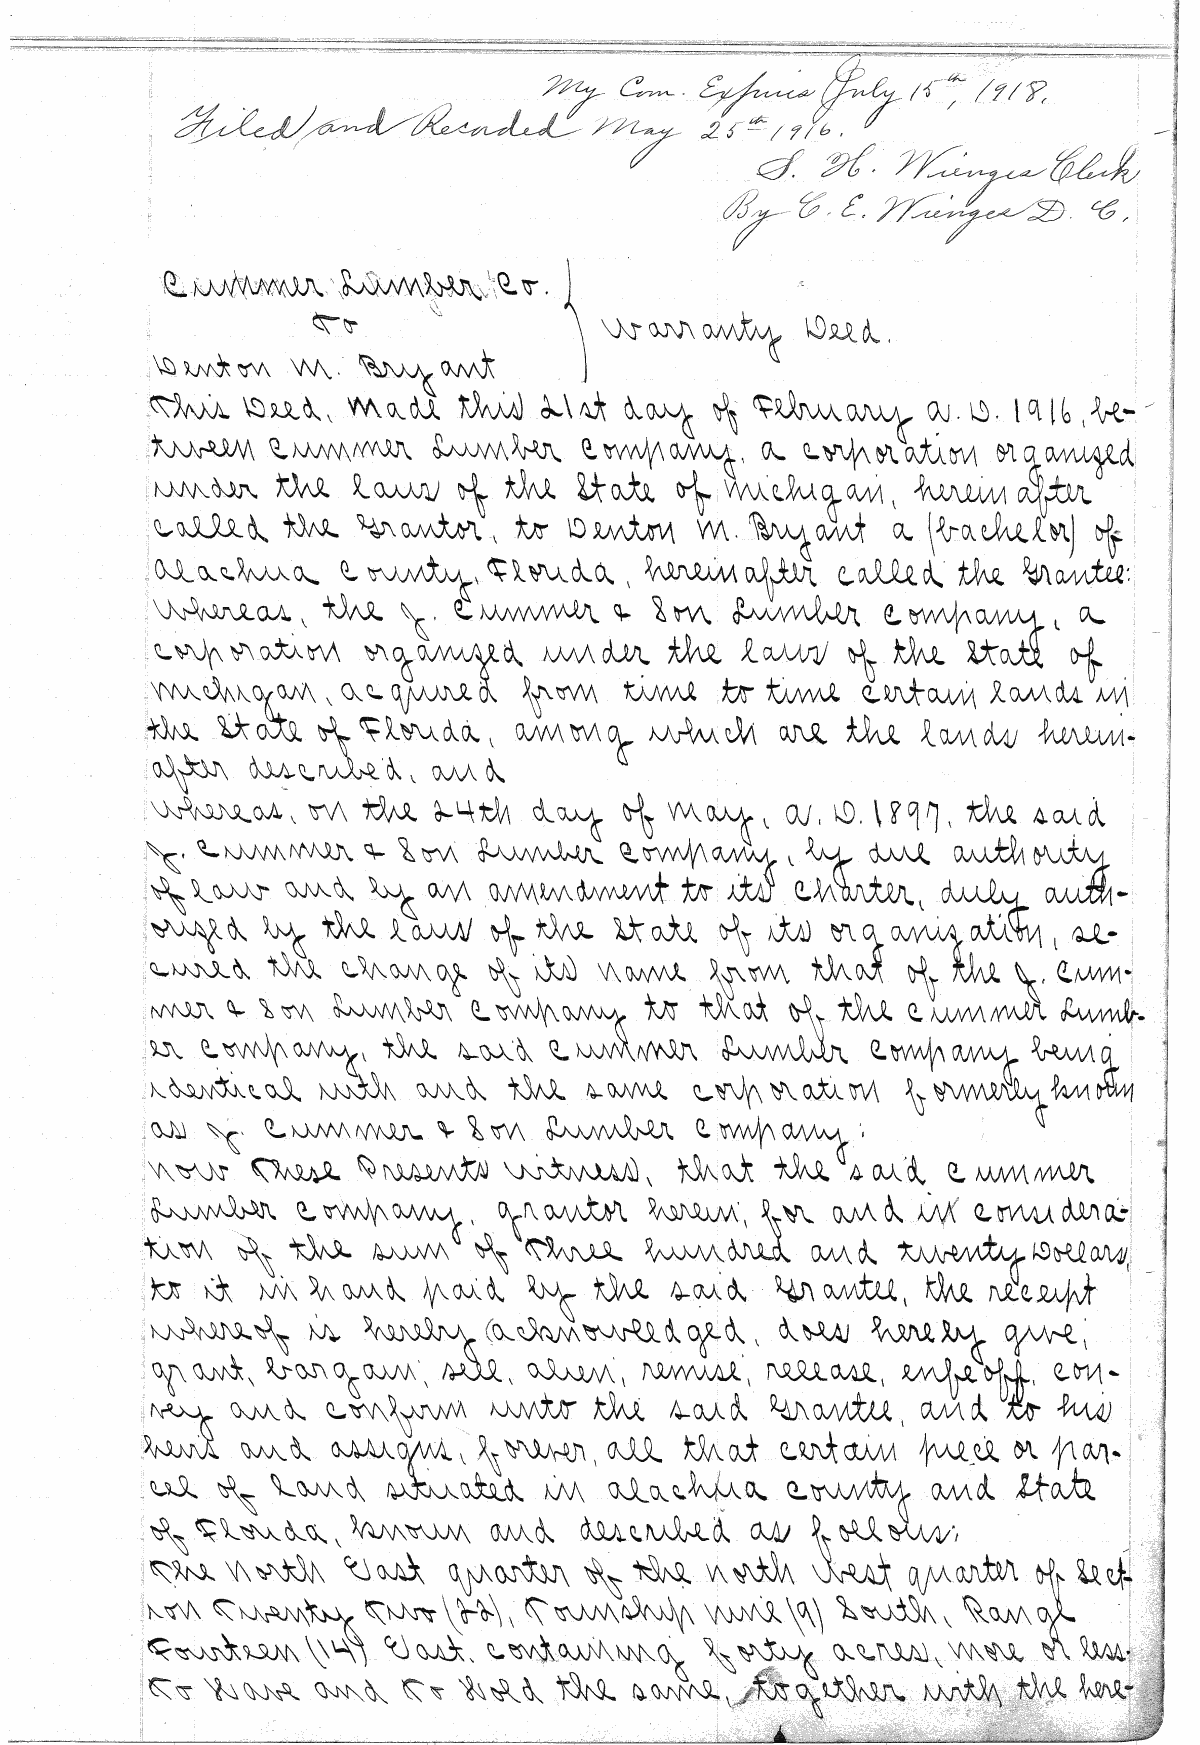 My Com. Expires July 15th, 1918.
Filed and Recorded May 25th 1916.
S. H. Wienges Clerk
By C. E. Wienges D. C.
Cummer Lumber Co.
To
Warranty Deed.
Denton M. Bryant
This Deed, Made this 21st day of February A. D. 1916, be-
tween Cummer Lumber Company, a corporation organized
under the laws of the State of Michigan, hereinafter
called the Grantor, to Denton M. Bryant a (bachelor) of
Alachua County, Florida, hereinafter called the Grantee:
Whereas, the J. Cummer & Son Lumber Company, a
corporation organized under the laws of the State of
Michigan, acquired from time to time certain lands in
the State of Florida, among which are the lands herein-
after described, and
Whereas, on the 24th day of May, A. D. 1897, the said
J. Cummer & Son Lumber Company, by due authority
of law and by an amendment to its charter, duly auth-
orized by the laws of the State of its organization, se-
cured the change of its name from that of the J. Cum-
mer & Son Lumber Company to that of the Cummer Lumb-
er Company, the said Cummer Lumber Company being
identical with and the same corporation formerly known
as J. Cummer & Son Lumber Company:
Now These Presents Witness, that the said Cummer
Lumber Company, grantor herein, for and in considera-
tion of the sum of Three hundred and twenty Dollars,
to it in hand paid by the said Grantee, the receipt
whereof is hereby acknowledged, does hereby give,
grant, bargain, sell, alien, remise, release, enfeoff, con-
vey and confirm unto the said Grantee, and to his
heirs and assigns, forever, all that certain piece or par-
cel of land situated in Alachua County and State
of Florida, known and described as follows:
The North East quarter of the North West quarter of Sect-
ion Twenty Two (22), Township nine (9) South, Range
Fourteen (14) East, containing forty acres, more or less.
To Have and To Hold the same, together with the here-